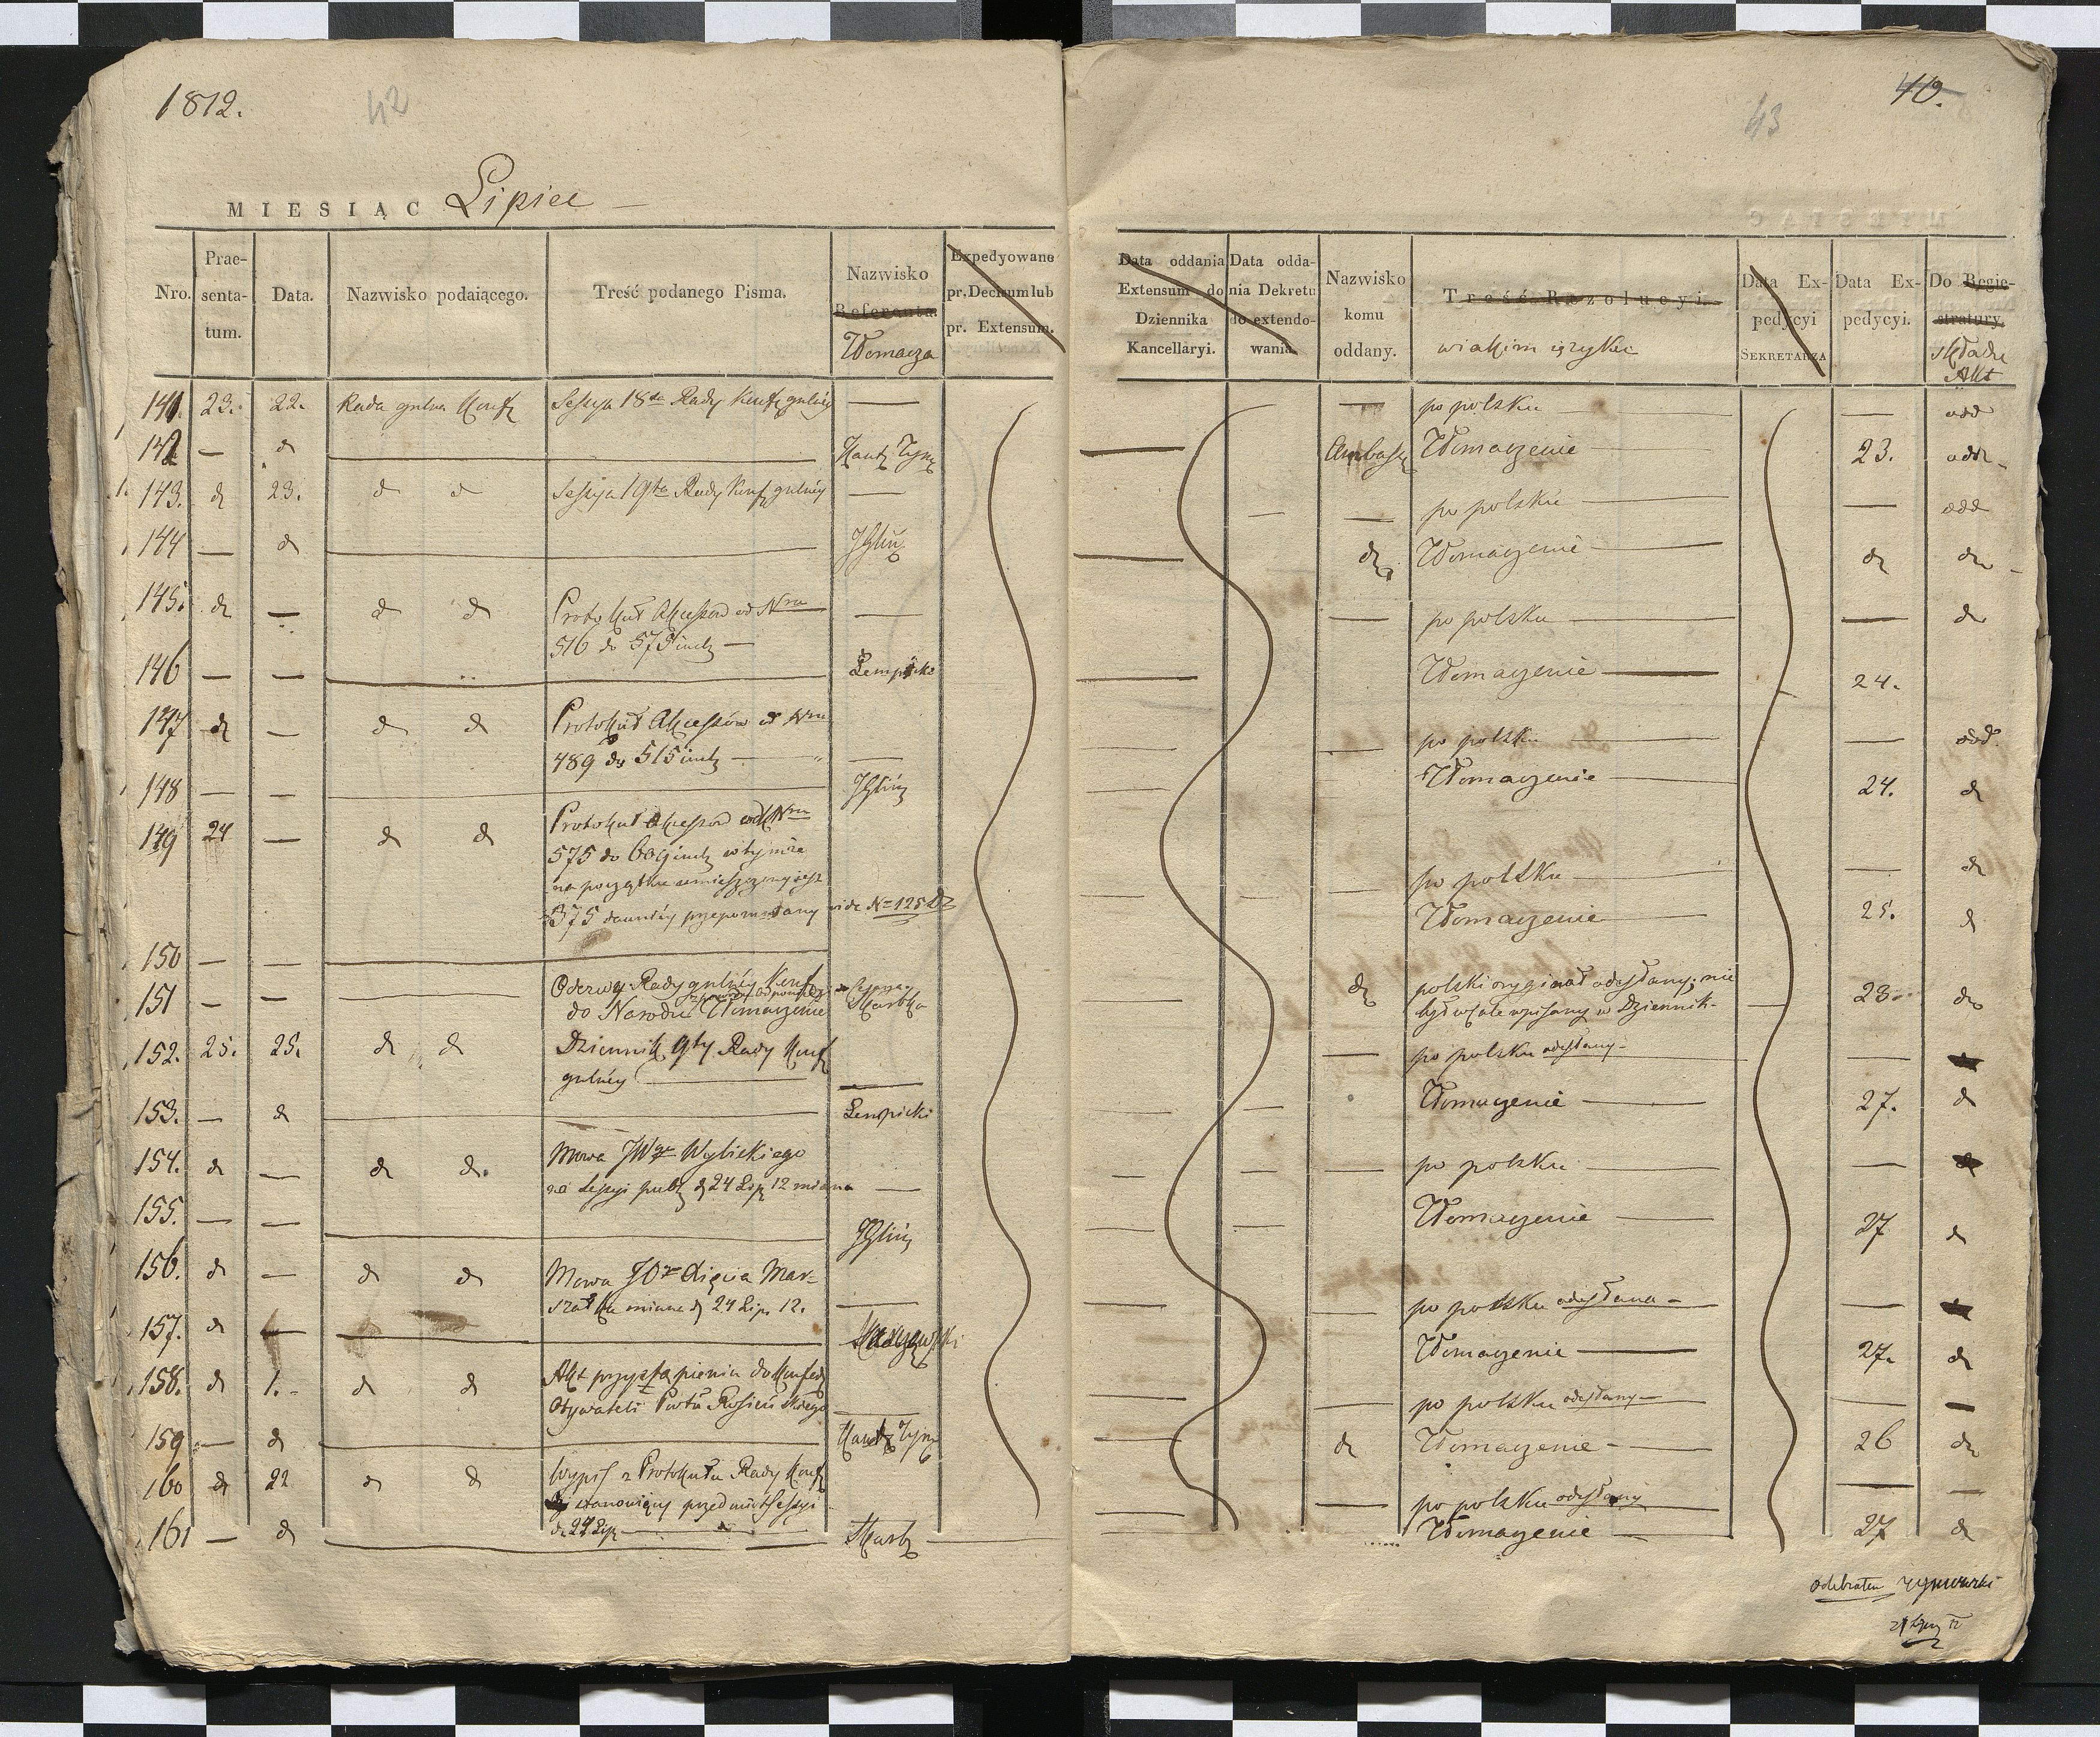 1812.
42
MIESIĄC Lipiec
Nro.
Prae-
senta-
tum.
Data.
Nazwisko podaiącego.
Treść podanego Pisma.
Nazwisko
Referenta.
Tłomacza
Expedyowane
pr. Decisum lub
pr. Extensum.
141. 23. 22. Rada gnlna Konf Sessya 18ta Rady Konf gnlney —
142 — d Kant Tym
143. d 23. d d Sessya 19ta Rady Konf gnlney —
144 — d JGliń
145. d — d d Protokuł Akcessów od Nru —
516 do 575 incl —
146 — — Łempicki
147 d — d d Protokuł Akcessów od Nru
489 do 515 incl — —
148 — — JGliń
149 24 — d d Protokuł Akcessów od Nru
575 do 609 incl w tymże
na początku umieszczony jest
575 dawniey przepomniany vide No 125
150 — —
151 — — — Odezwy Rady gnlney Konf
do Narodu Tłomaczenie Skarbka
152. 25. 25. d d Dziennik 9ty Rady Konf
gnlney —
153. — d Łempicki
154. d — d d. Mowa JWgo Wybickiego
na Sessyi publ d 24 Lip 12 miana —
155. — — JGliń
156. d — d d Mowa JOgo Xięcia Mar-
szałka miana d 24 Lip. 12. —
157. d —
158. d 1. d d Akt przystąpienia do Konfed
Obywateli Powtu Rosieńskiego —
159 — d Kant Tym
160 d 22 d d Wypis z Protokułu Rady Konf
stanowiący przedmiot Sessyi
d. 24 Lip —
161 — d Skarb
40.
43
Data oddania
Extensum do
Dziennika
Kancellaryi.
Data odda-
nia Dekretu
do extendo-
wania
Nazwisko
komu
oddany.
Treść Rezolucyi.
w iakim ięzyku
Data Ex-
pedycyi
SEKRETARZA
Data Ex-
pedycyi.
Do Regie-
stratury.
składu
Akt
— po polsku — — odd
Ambass Tłomaczenie — 23. odd
— po polsku — — odd
d Tłomaczenie — d d
— po polsku — — d
Tłomaczenie — 24.
— po polsku — — odd.
Tłomaczenie — 24. d
— po polsku — — d
Tłomaczenie — 25. d
d polski oryginał odesłany; nie
był wcale wpisany w Dziennik. 23. d
— po polsku odesłany — —
Tłomaczenie — 27. d
— po polsku — —
Tłomaczenie — 27 d
— po polsku odesłana — —
Tłomaczenie — 27. d
— po polsku odesłany — — —
d Tłomaczenie — 26 d
— po polsku odesłany — —
Tłomaczenie — 27 d
odebrałem Tymowski